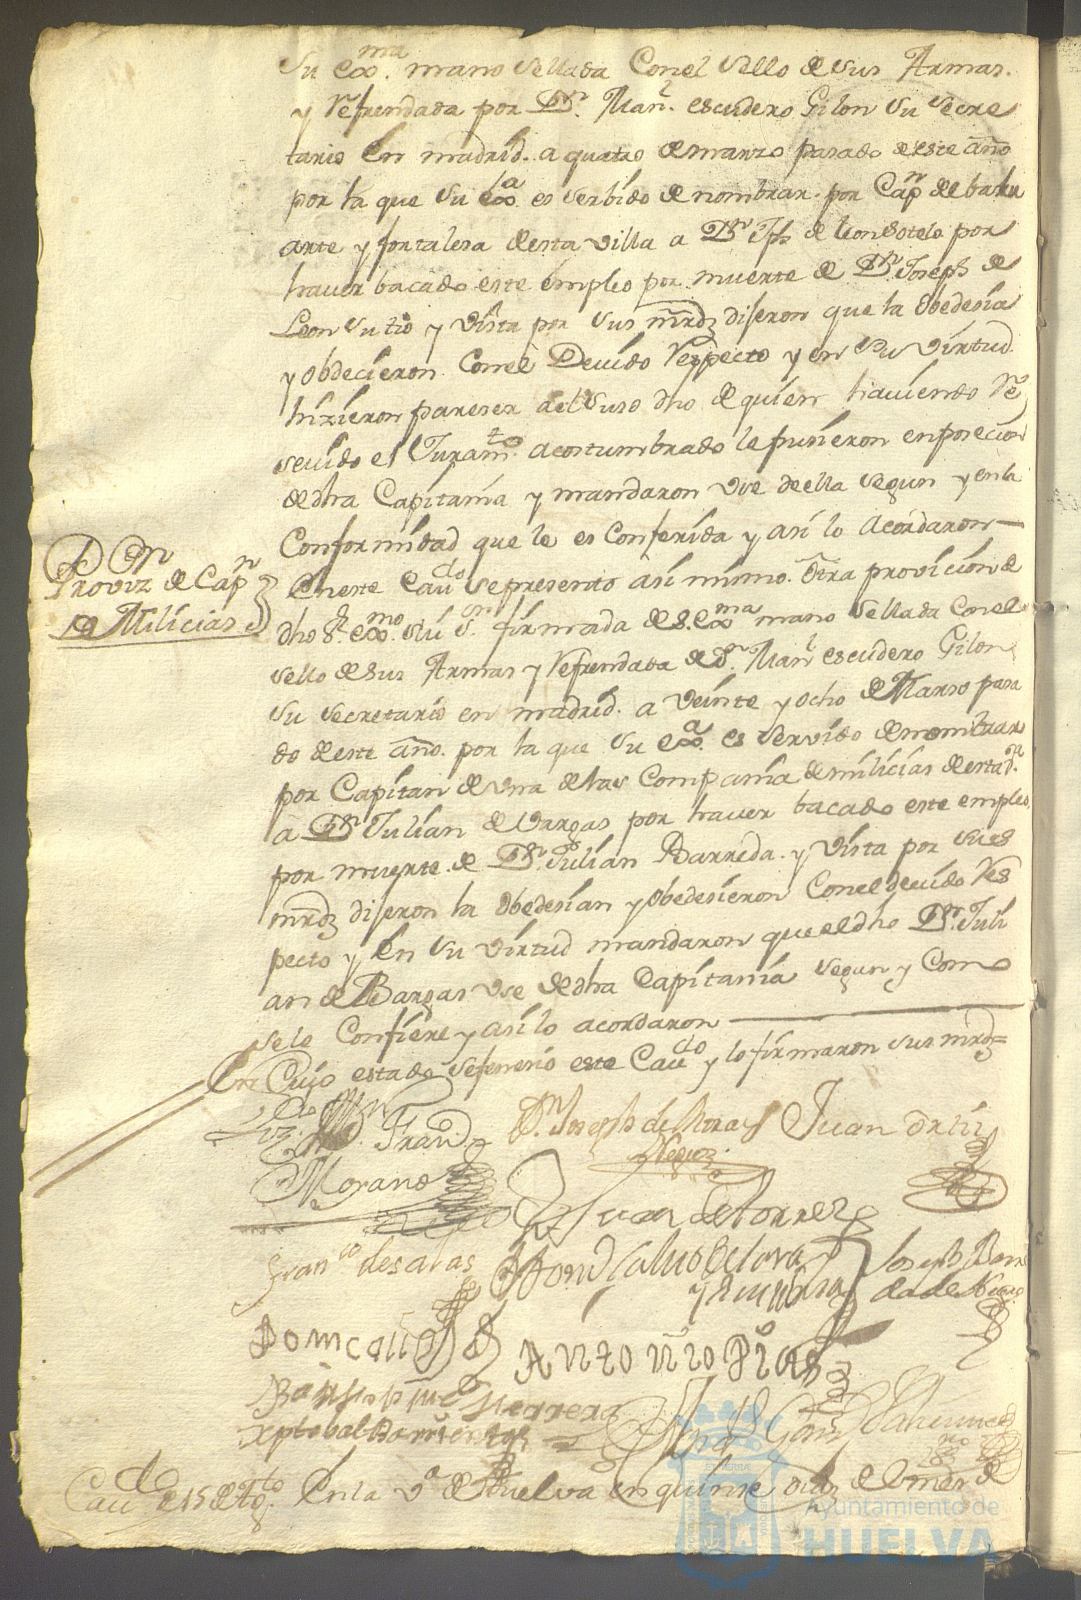 Su exx.ma mano sellada Conel sello de sus Armas.
y Refrendada por Dn. Manl. escudero Gilon Su Secre
tario En madrid. a quatro de marzo pasado de este año
por la que Su exx.a es serbido de nombrar. por Capn de balu
arte y fortalesa desta villa a Dn Jph de leon Sotelo por
haver bacado este empleo por muerte de Dn. Joseph de
Leon su tio y vista por sus mrdz dijeron que la obedesia
y obdecieron Conel Devido Respecto y en su virtud
hizieron pareser al suso dho de quien haviendo Re
sevido el Juramto. acostumbrado le pusieron enposecion
de dha Capitania y mandaron use de ella segun y enla
Conformidad que le es Conferida y asi lo acordaron
Proviz.on de Capn
de Milicias
En este Cavdo se presento asi mismo. otra provicion de
dho Sr. exx.mo Su Sr. firmada de S. exx.ma mano sellada Conel
sello de sus Armas y Refrendada de Dn. Manl escudero Gilon
Su secretario en madrid. a veinte y ocho de Marzo pasa
do de este año. por la que Su exx.a es servido de nombrar
por Capitan de una de las Compania de milicias desta va.
a Dn Julian de Vargas por haver bacado este empleo
por muerte de Dn. Julian Barreda. y vista por sus
mrdz dijeron la obedesian y obedesieron Conel devido Res
pecto y En su virtud mandaron que el dho Dn. Juli
an de Bargas use de dha Capitania segun y Como
se le Confiere y asi lo acordaron
En Cuio estado sefenecio este Cavdo y lo firmaron sus mrdz=
Lizdo Dn Franco
Morano
Dn. Joseph de Mora y
Negro
Juan Ortiz
Juan de torres
Franco de salas
y
Joseph Barre
da de Negro
Antonio Pias
Herrera
xptobal Barrientos
Cavdo de 15 de Agto.
En la va de Huelva en quinse dias del mes de
Ayuntamiento de
HUELVA